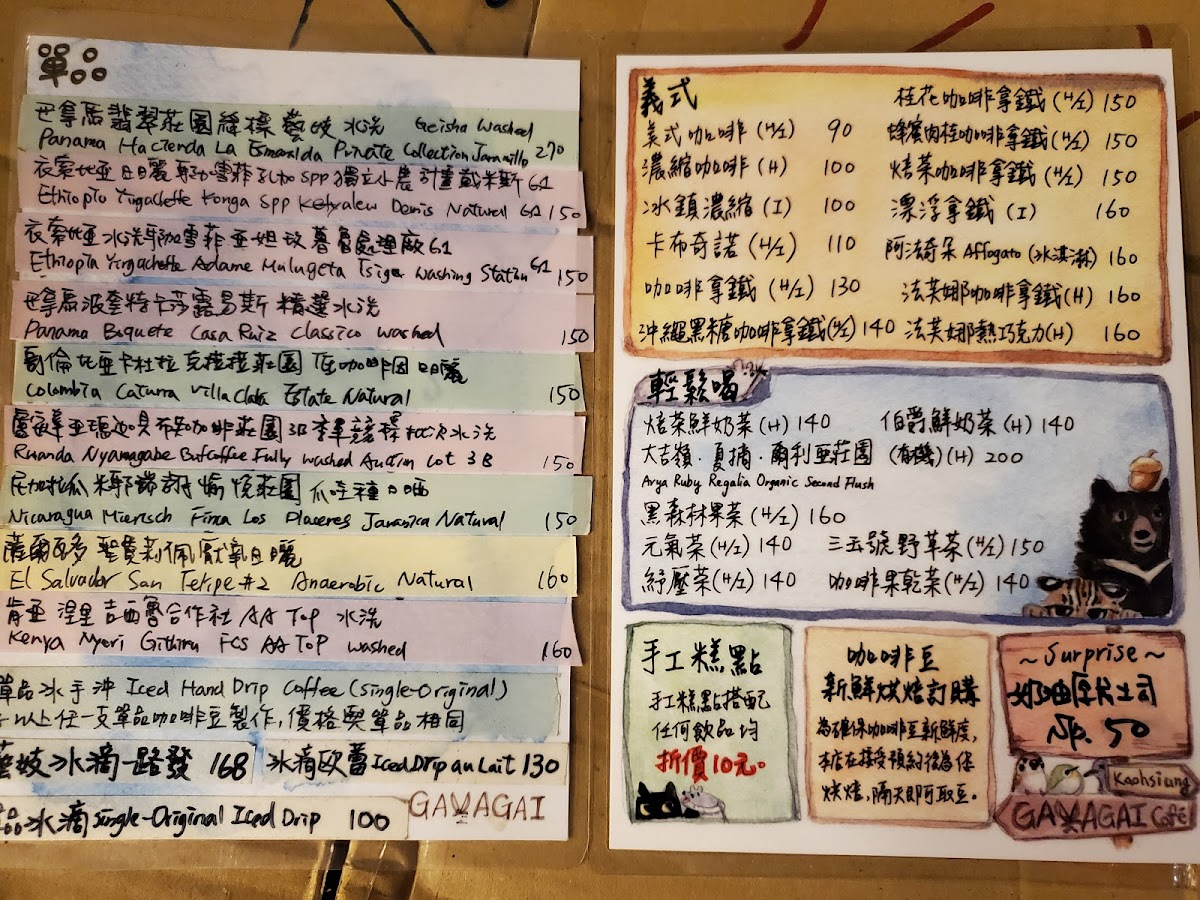 單品
巴拿馬 翡翠莊園綠標 藝妓 水洗 Geisha Washed
Panama Hacienda La Esmeralda Private Collection Jaramillo 270
衣索比亞 日曬 耶加雪菲 孔加 SPP 獨立小農計畫 戴米斯 G1
Ethiopia Yirgacheffe Konga Spp Ketyalew Demis Natural G1 150
衣索比亞 水洗 耶加雪菲 處理廠 G1
Ethiopia Yirgacheffe Adame Mulugeta Tsiger Washing Station G1 150
巴拿馬 波奎特 卡莎露易斯 精選水洗
Panama Boquete Casa Ruiz Classico Washed 150
哥倫比亞 卡杜拉 莊園 低咖啡因 日曬
Colombia Caturra Villa Clabe Estate Natural 150
盧安達 咖啡莊園 3B 競標批次 水洗
Ruanda Nyamagabe Bufcoffee Fully washed Auction Lot 3B 150
尼加拉瓜 米耶瑞許 愉悅莊園 爪哇種 日曬
Nicaragua Mierisch Finca Los Placeres Javanica Natural 150
薩爾瓦多 聖費莉佩 厭氧日曬
El Salvador San Felipe #2 Anaerobic Natural 160
肯亞 涅里 吉西魯合作社 AA TOP 水洗
Kenya Nyeri Githiru FCS AA TOP washed 160
單品冰手沖 Iced Hand Drip Coffee (Single-Original)
以上任一支單品咖啡豆製作,價格與單品相同
藝妓冰滴 一路發 168 冰滴歐蕾 Iced Drip au Lait 130
單品冰滴 Single-Original Iced Drip 100
GAVAGAI
義式
美式咖啡 (H/I) 90
濃縮咖啡 (H) 100
冰鎖濃縮 (I) 100
卡布奇諾 (H/I) 110
咖啡拿鐵 (H/I) 130
沖繩黑糖咖啡拿鐵 (H/I) 140
桂花咖啡拿鐵 (H/I) 150
蜂蜜肉桂咖啡拿鐵 (H/I) 150
焙茶咖啡拿鐵 (H/I) 150
漂浮拿鐵 (I) 160
阿法奇朵 Affogato (冰淇淋) 160
法芙娜咖啡拿鐵 (H) 160
法芙娜熱巧克力 (H) 160
輕鬆喝
焙茶鮮奶茶 (H) 140 伯爵鮮奶茶 (H) 140
大吉嶺.夏摘.爾利亞莊園 (有機) (H) 200
Arya Ruby Regalia Organic Second Flush
黑森林果茶 (H/I) 160
元氣茶 (H/I) 140 三五號野草茶 (H/I) 150
紓壓茶 (H/I) 140 咖啡果乾茶 (H/I) 140
手工糕點
手工糕點搭配
任何飲品均
折價10元。
咖啡豆
新鮮烘焙訂購
為確保咖啡豆新鮮度,
本店在接受預約後為您
烘焙,隔天即可取豆。
~Surprise~
奶油厚片土司
NT. 50
Kaohsiung
GAVAGAI Café